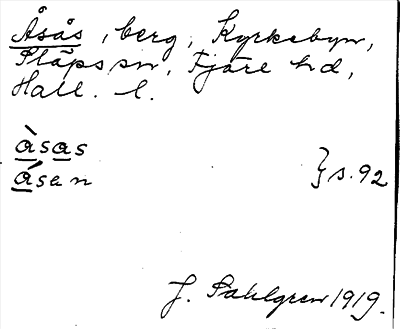 Åsås, berg, Kyrkobyn,
Släps sn, Fjäre hd,
Hall. l.
àsas
ásen } s. 92
J. Sahlgren 1919.